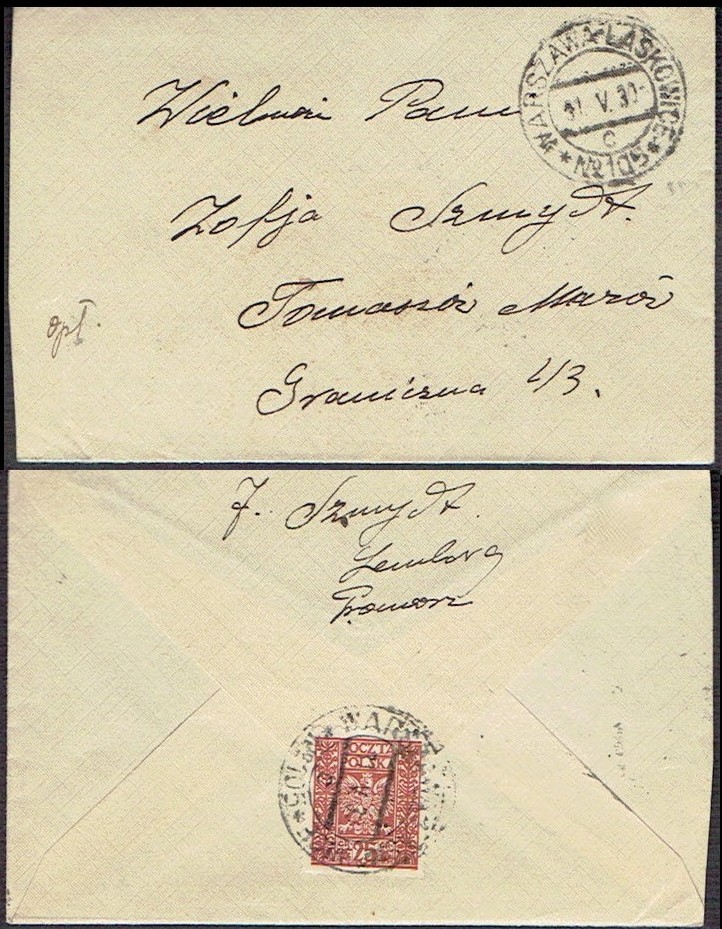 WARSZAWA-LASKOWICE
31. V. 30-
c
* № 105 *
Wielmożni Pani
Zofja Szmydt.
Tomaszów Mazow
Graniczna 1/3.
opł.
F. Szmydt.
Lemberg
Pomorz
WARSZ
POCZTA
POLSKA
25